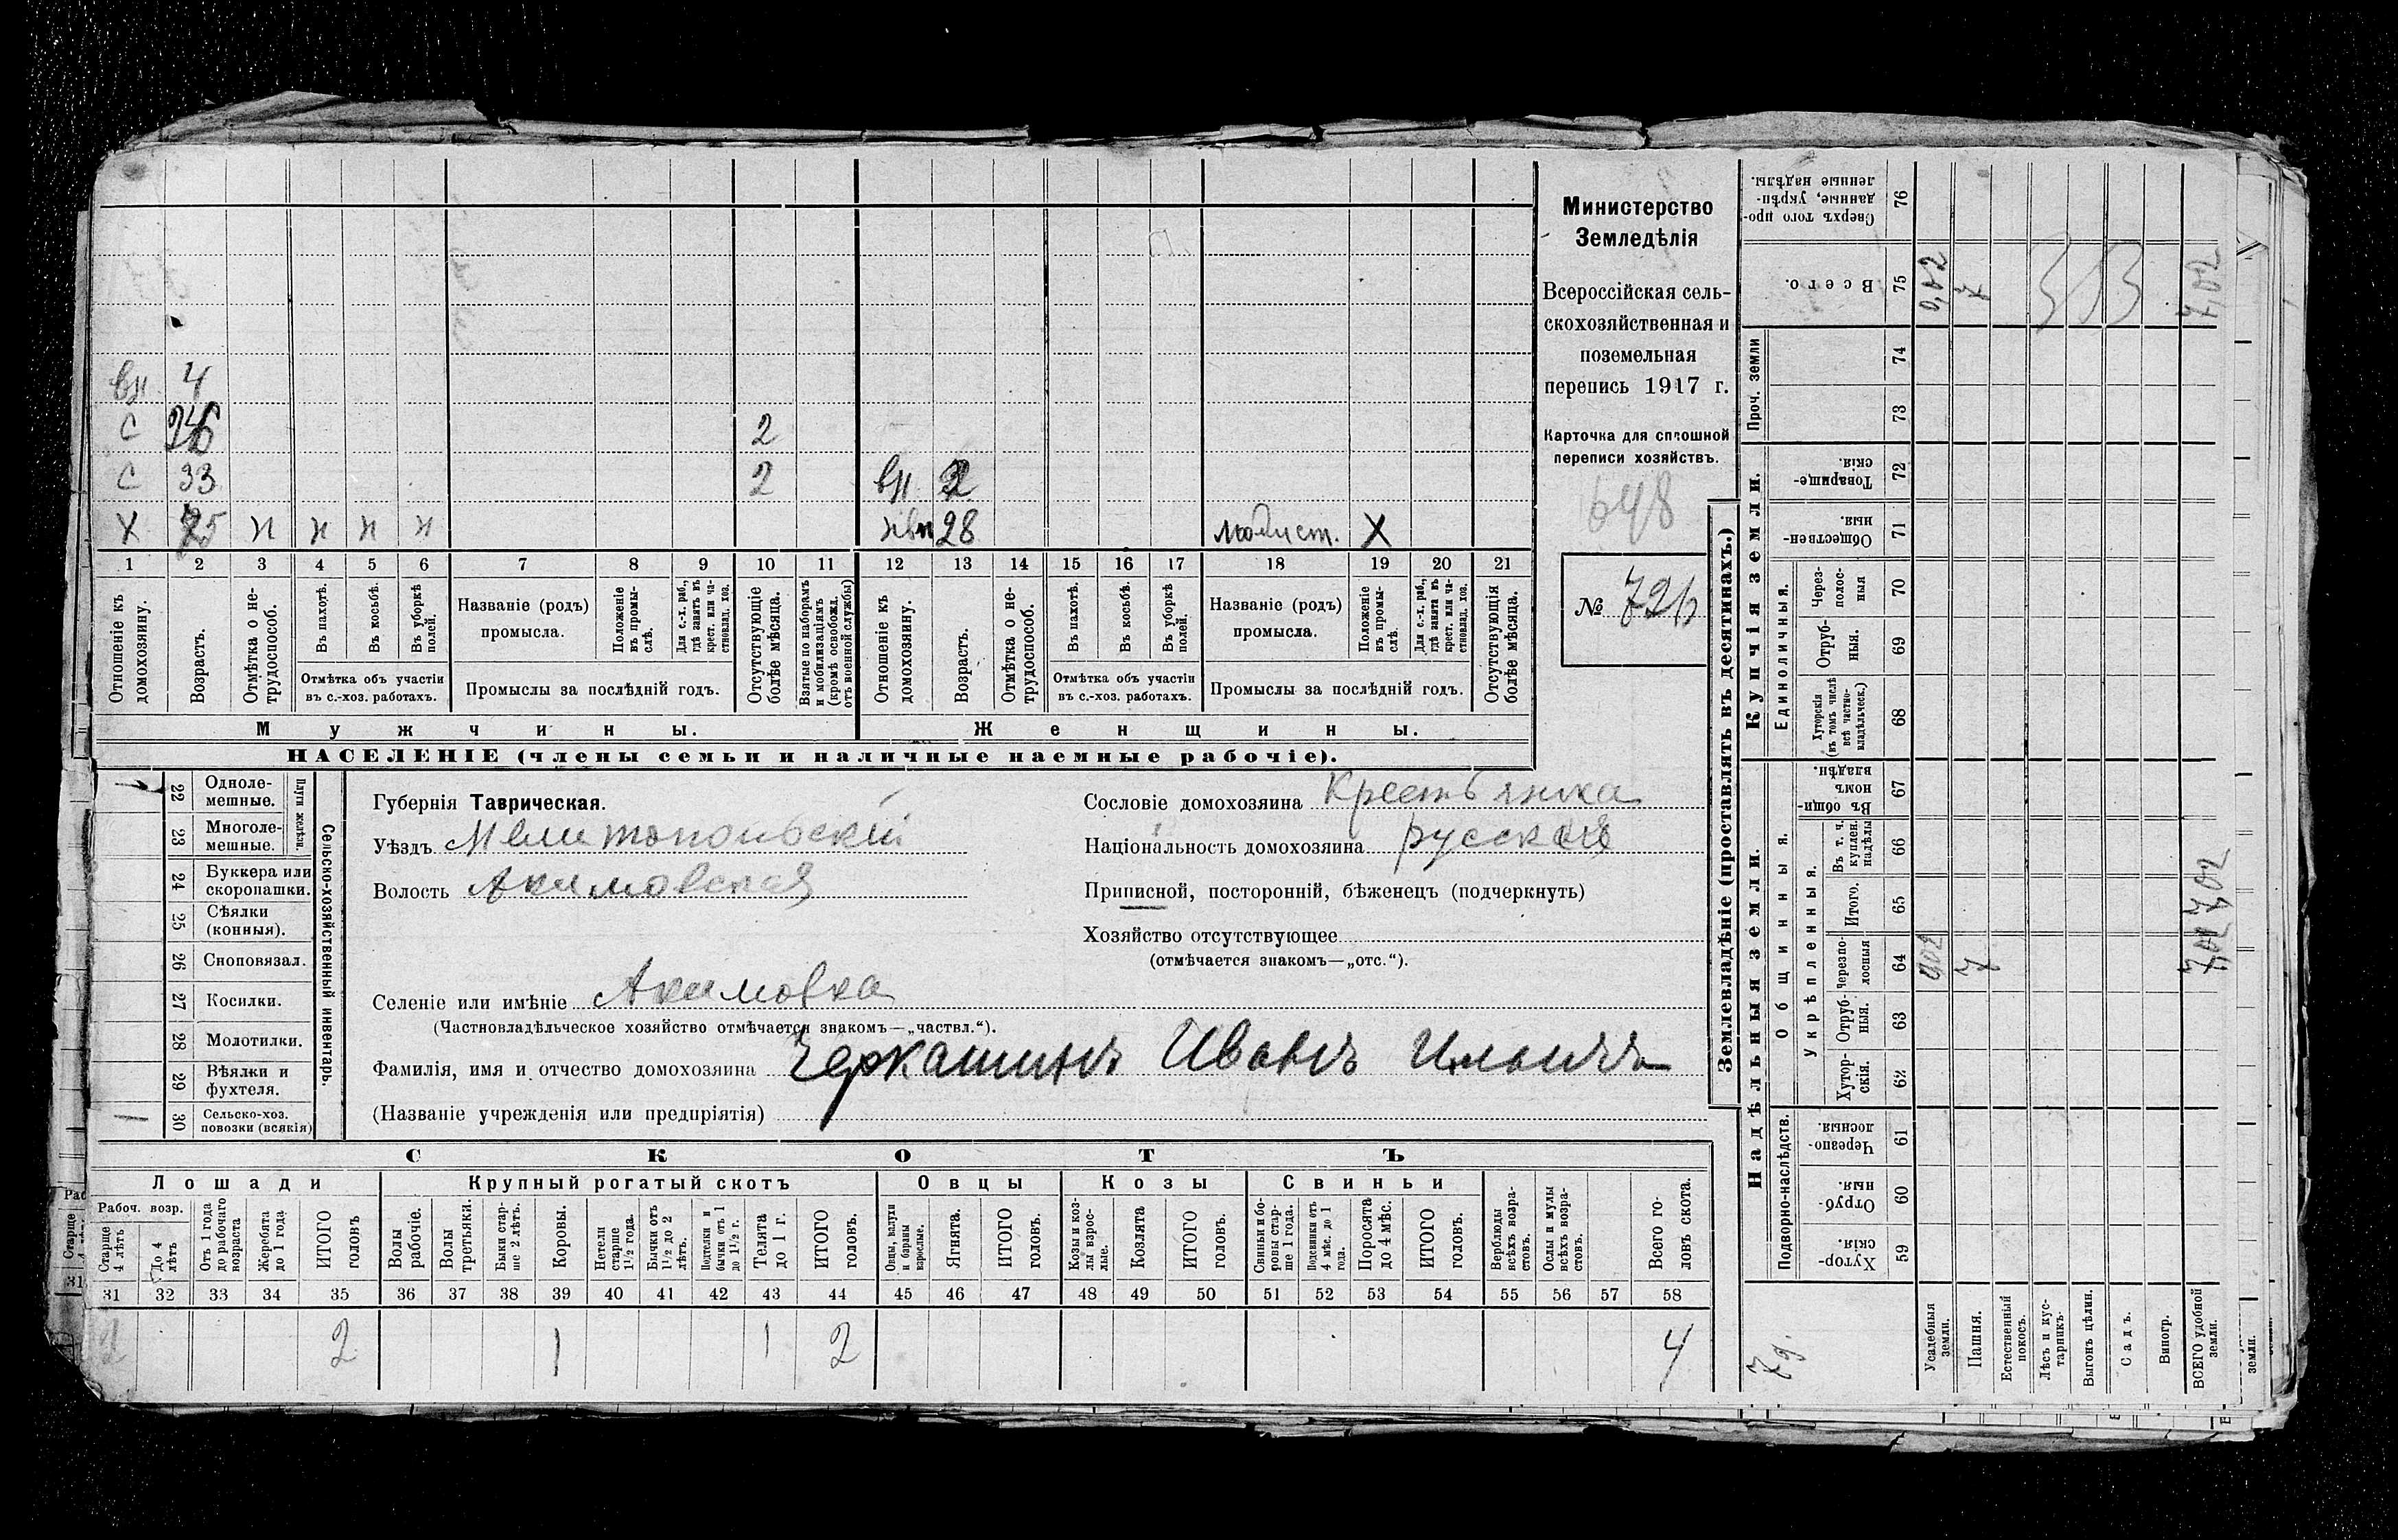 вн 4
С 2
С 33 2 вн 2
Х 75 н н н н 28 модист. Х
1 2 3 4 5 6 7 8 9 10 11 12 13 14 15 16 17 18 19 20 21
Отношеніе къ домохозяину.
Возрастъ.
Отмѣтка о нетрудоспособ.
Въ пахотѣ.
Въ косьбѣ.
Въ уборкѣ полей.
Отмѣтка объ участіи
въ с.-хоз. работахъ.
Названіе (родъ)
промысла.
Положеніе въ промыслѣ.
Для с.-х. раб., гдѣ занятъ въ крест. или частновлад. хоз.
Промыслы за послѣдній годъ.
Отсутствующіе болѣе мѣсяца.
Взятые по наборамъ и мобилизаціямъ (кромѣ освобожд. отъ военной службы)
Отношеніе къ домохозяину.
Возрастъ.
Отмѣтка о нетрудоспособ.
Въ пахотѣ.
Въ косьбѣ.
Въ уборкѣ полей.
Отмѣтка объ участіи
въ с.-хоз. работахъ.
Названіе (родъ)
промысла.
Положеніе въ промыслѣ.
Для с.-х. раб., гдѣ занята въ крест. или частновлад. хоз.
Промыслы за послѣдній годъ.
Отсутствующія болѣе мѣсяца.
Мужчины. Женщины.
НАСЕЛЕНІЕ (члены семьи и наличные наемные рабочіе).
Министерство
Земледѣлія
Всероссійская сель-
скохозяйственная и
поземельная
перепись 1917 г.
Карточка для сплошной
переписи хозяйствъ.
648
№ 726
Сельско-хозяйственный инвентарь.
Плуги желѣзн.
22 Одноле-
мешные.
23 Многоле-
мешные.
24 Буккера или
скоропашки.
25 Сѣялки
(конныя).
26 Сноповязал.
27 Косилки.
28 Молотилки.
29 Вѣялки и
фухтеля.
30 Сельско-хоз.
повозки (всякія)
Губернія Таврическая.
Уѣздъ Мелитопольскій
Волость Акимовская
Селеніе или имѣніе Акимовка
(Частновладѣльческое хозяйство отмѣчается знакомъ—„частвл.“).
Фамилія, имя и отчество домохозяина Черкашинъ Иванъ Ильичъ
(Названіе учрежденія или предпріятія)
Сословіе домохозяина Крестьянка
Національность домохозяина русскій
Приписной, посторонній, бѣженецъ (подчеркнуть)
Хозяйство отсутствующее
(отмѣчается знакомъ—„отс.“).
СКОТЪ
Лошади Крупный рогатый скотъ Овцы Козы Свиньи
Рабоч. возр.
Старше 4 лѣтъ
До 4 лѣтъ
Отъ 1 года до рабочаго возраста
Жеребята до 1 года
ИТОГО головъ
Волы рабочіе.
Волы третьяки.
Быки старше 2 лѣтъ.
Коровы.
Нетели старше 1½ года.
Бычки отъ 1½ до 2 лѣтъ.
Подтелки и бычки отъ 1 до 1½ г.
Телята до 1 г.
ИТОГО головъ.
Овцы, валухи и бараны взрослые.
Ягнята.
ИТОГО головъ.
Козы и козлы взрослые.
Козлята
ИТОГО головъ.
Свиньи и боровы старше 1 года.
Подсвинки отъ 4 мѣс. до 1 года.
Поросята до 4 мѣс.
ИТОГО головъ.
Верблюды всѣхъ возрастовъ.
Ослы и мулы всѣхъ возрастовъ.
Всего головъ скота.
31 32 33 34 35 36 37 38 39 40 41 42 43 44 45 46 47 48 49 50 51 52 53 54 55 56 57 58
2 2 1 1 2 4
Землевладѣніе (проставлять въ десятинахъ.)
Надѣльныя земли.
Купчія земли.
Подворно-наслѣдств.
Общинныя.
Укрѣпленныя.
Единоличныя.
Проч. земли
Хуторскія. 59
Отрубныя. 60
Черезполосныя. 61
Хуторскія. 62
Отрубныя. 63
Черезполосныя 64
Итого. 65
Въ т. ч. куплен. надѣлы 66
Въ общинномъ владѣн. 67
Хуторскія (въ томъ числѣ всѣ частновладѣльческ.) 68
Отрубныя. 69
Черезполосныя 70
Общественныя. 71
Товарищескія. 72
73
74
Всего. 75
Сверхъ того проданные, укрѣпленные надѣлы. 76
Усадебныя земли.
Пашня.
Естественный покосъ.
Лѣсъ и кустарникъ.
Выгонъ цѣлин.
Садъ.
Виногр.
ВСЕГО удобной земли.
0,02 7 7,02
7 7,02
7 д.